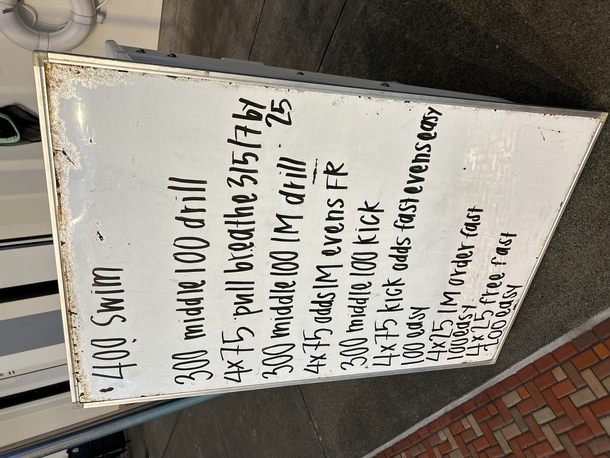 400 Swim
300 middle 100 drill
4x75 pull breathe 3/5/7 by 25
300 middle 100 IM drill
4x75 odds IM evens FR
300 middle 100 kick
4x75 kick odds fast evens easy
100 easy
4x25 IM order fast
100 easy
4x25 free fast
200 easy